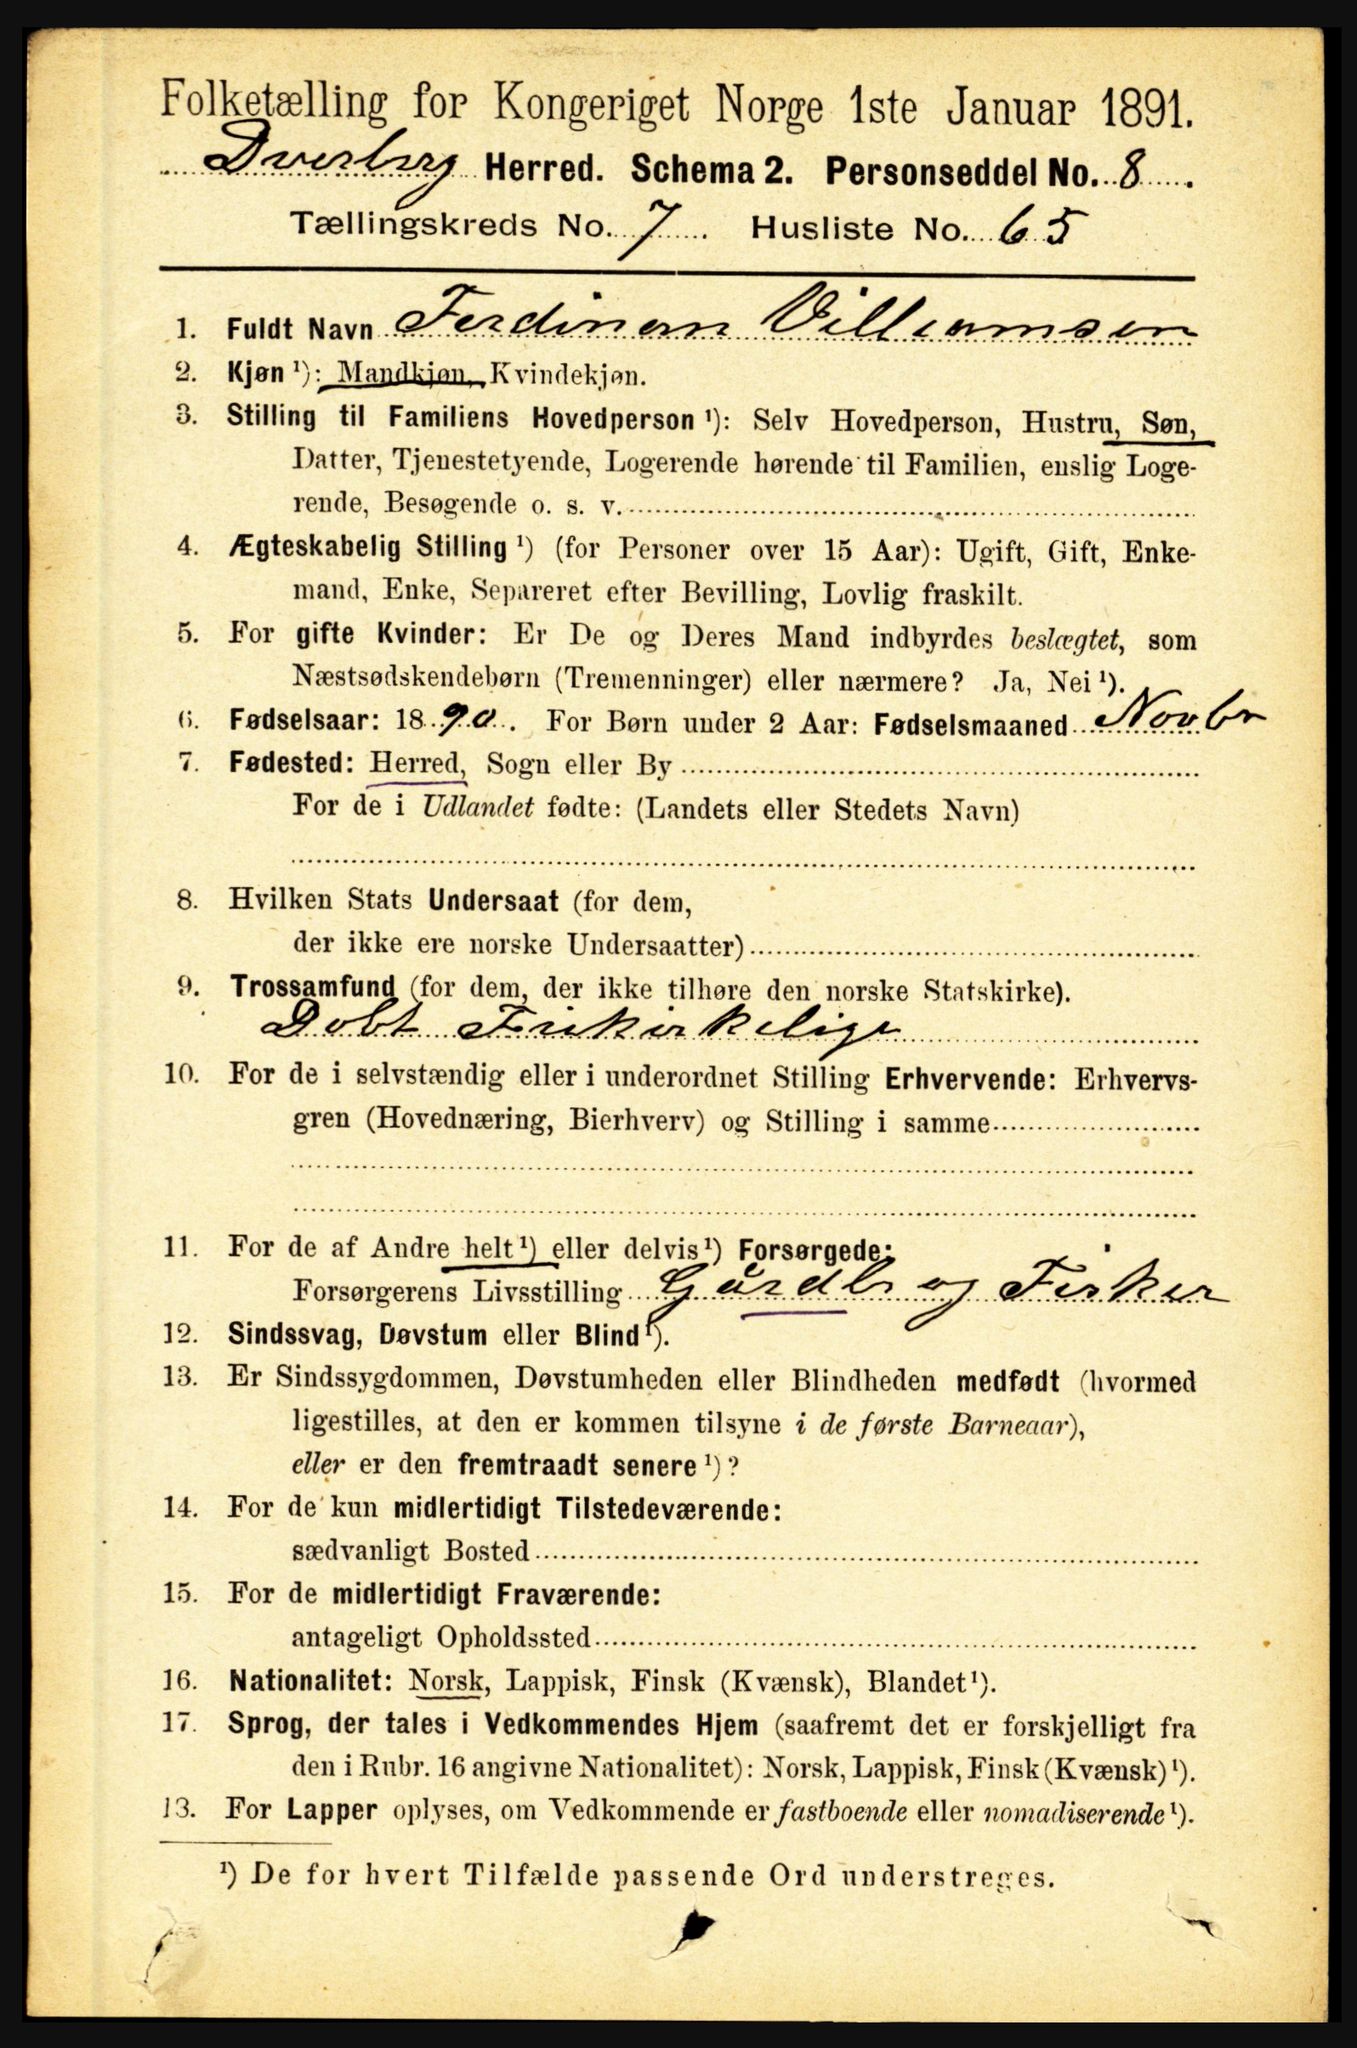 Folketælling for Kongeriget Norge 1ste Januar 1891.
Dverberg Herred. Schema 2. Personseddel No. 8.
Tællingskreds No. 7. Husliste No. 65
1. Fuldt Navn Ferdinan Villiamsen
2. Kjøn ¹): Mandkjøn, Kvindekjøn.
3. Stilling til Familiens Hovedperson ¹): Selv Hovedperson, Hustru, Søn,
Datter, Tjenestetyende, Logerende hørende til Familien, enslig Loge-
rende, Besøgende o. s. v.
4. Ægteskabelig Stilling ¹) (for Personer over 15 Aar): Ugift, Gift, Enke-
mand, Enke, Separeret efter Bevilling, Lovlig fraskilt.
5. For gifte Kvinder: Er De og Deres Mand indbyrdes beslægtet, som
Næstsødskendebørn (Tremenninger) eller nærmere? Ja, Nei ¹).
6. Fødselsaar: 1890. For Børn under 2 Aar: Fødselsmaaned Novbr
7. Fødested: Herred, Sogn eller By
For de i Udlandet fødte: (Landets eller Stedets Navn)
8. Hvilken Stats Undersaat (for dem,
der ikke ere norske Undersaatter)
9. Trossamfund (for dem, der ikke tilhøre den norske Statskirke).
Døbt Frikirkelige
10. For de i selvstændig eller i underordnet Stilling Erhvervende: Erhvervs-
gren (Hovednæring, Bierhverv) og Stilling i samme
11. For de af Andre helt ¹) eller delvis ¹) Forsørgede:
Forsørgerens Livsstilling Gårdbr og Fisker
12. Sindssvag, Døvstum eller Blind ¹).
13. Er Sindssygdommen, Døvstumheden eller Blindheden medfødt (hvormed
ligestilles, at den er kommen tilsyne i de første Barneaar),
eller er den fremtraadt senere ¹)?
14. For de kun midlertidigt Tilstedeværende:
sædvanligt Bosted
15. For de midlertidigt Fraværende:
antageligt Opholdssted
16. Nationalitet: Norsk, Lappisk, Finsk (Kvænsk), Blandet ¹).
17. Sprog, der tales i Vedkommendes Hjem (saafremt det er forskjelligt fra
den i Rubr. 16 angivne Nationalitet): Norsk, Lappisk, Finsk (Kvænsk) ¹).
13. For Lapper oplyses, om Vedkommende er fastboende eller nomadiserende ¹).
¹) De for hvert Tilfælde passende Ord understreges.